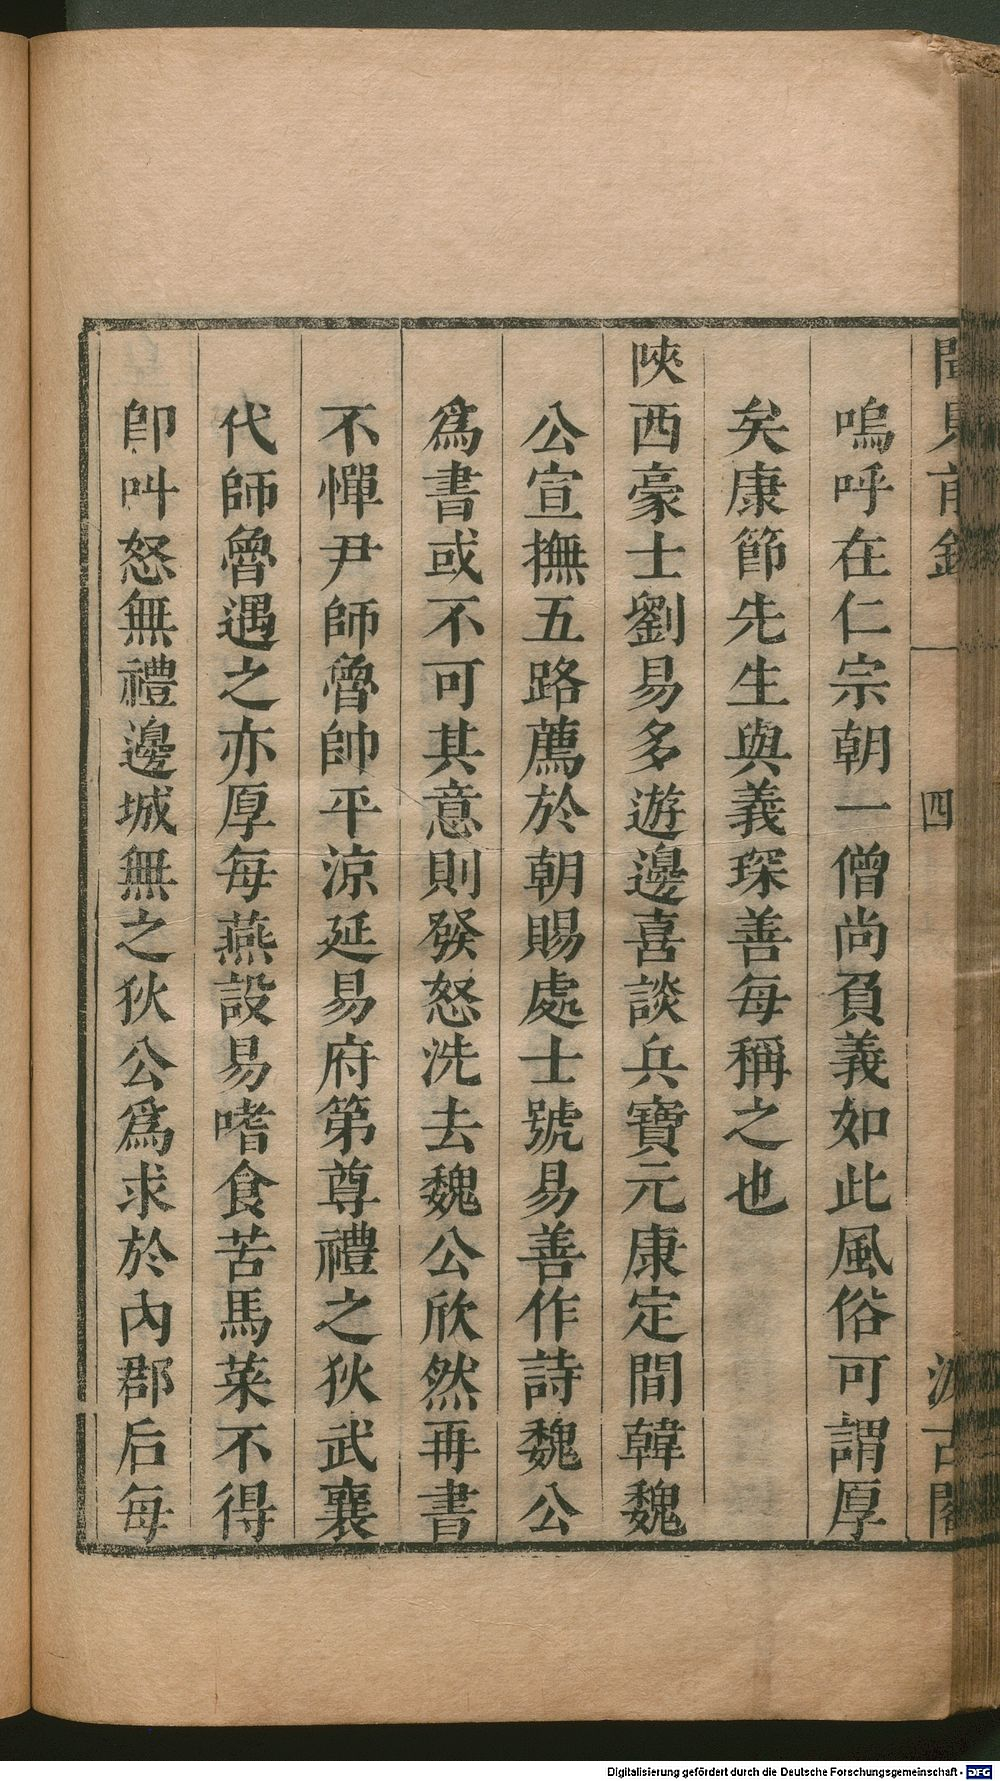 聞見前錄 四 汲古閣
嗚呼在仁宗朝一僧尚負義如此風俗可謂厚
矣康節先生與義琛善每稱之也
陝西豪士劉易多遊邊喜談兵寶元康定間韓魏
公宣撫五路薦於朝賜處士號易善作詩魏公
為書或不可其意則發怒洗去魏公欣然再書
不憚尹師魯帥平涼延易府第尊禮之狄武襄
代師魯遇之亦厚每燕設易嗜食苦馬菜不得
卽叫怒無禮邊城無之狄公為求於內郡后每
Digitalisierung gefördert durch die Deutsche Forschungsgemeinschaft - DFG